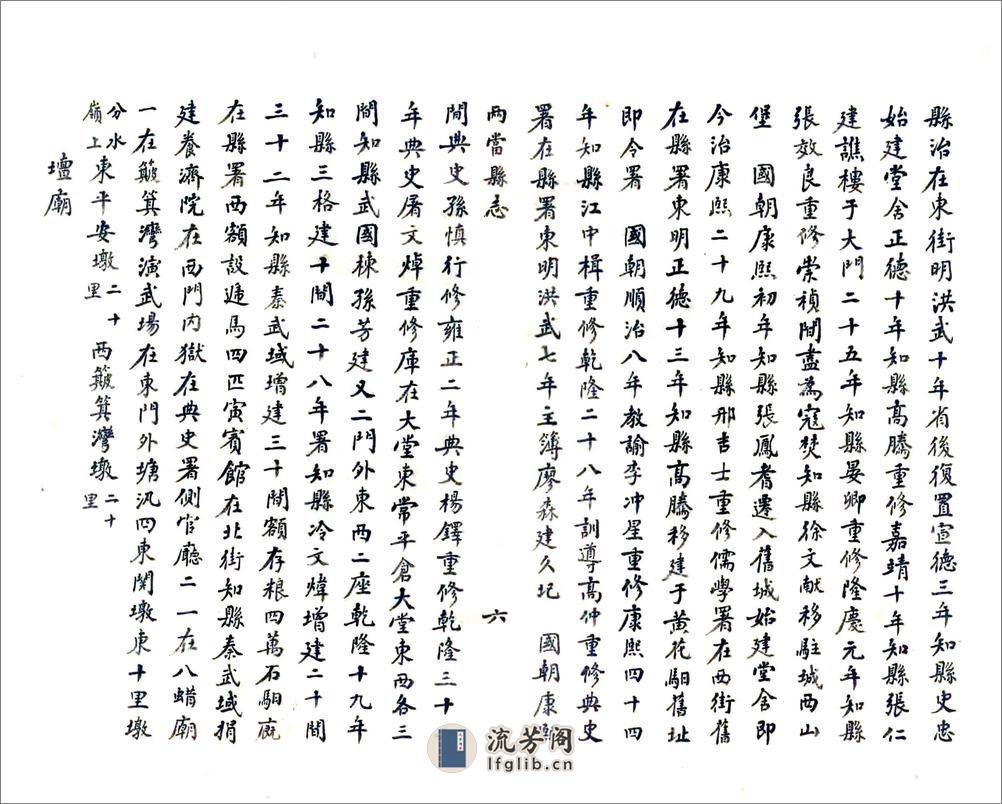 縣治在東街明洪武十年省後復置宣德三年知縣史忠
始建堂舍正德十年知縣高騰重修嘉靖十年知縣張仁
建譙樓于大門二十五年知縣晏卿重修隆慶元年知縣
張效良重修崇禎間盡為寇焚知縣徐文献移駐城西山
堡　國朝康熙初年知縣張鳳耆遷入舊城始建堂舍即
今治康熙二十九年知縣邢吉士重修儒學署在西街舊
在縣署東明正德十三年知縣高騰移建于黄花駅舊址
即今署　國朝順治八年教諭李冲星重修康熙四十四
年知縣江中楫重修乾隆二十八年訓導高仲重修典史
署在縣署東明洪武七年主簿廖森建久圮　國朝康熙
兩當縣志　六
間典史孫慎行修雍正二年典史楊鐸重修乾隆三十
年典史屠文焯重修庫在大堂東常平倉大堂東西各三
間知縣武國棟孫芳建又二門外東西二座乾隆十九年
知縣三格建十間二十八年署知縣冷文煒增建二十間
三十二年知縣秦武域增建三十間額存粮四萬石駅廐
在縣署西額設逓馬四匹寅賓館在北街知縣秦武域捐
建養濟院在西門内獄在典史署側官廳二一在八蜡廟
一在簸箕灣演武場在東門外塘汛四東関墩東十里墩
分水嶺上東平安墩二十里西簸箕灣墩二十里
壇廟
流芳阁
lfglib.cn